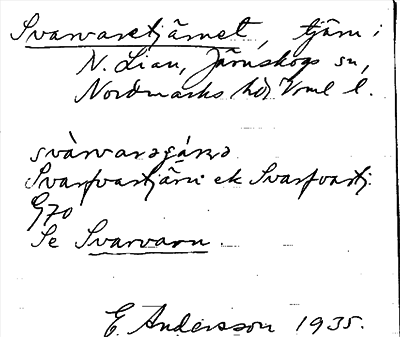 Svarvaretjärnet, tjärn i
N. Lian, Järnskogs sn,
Nordmarks hd, Vrml l.
Svarfvartjärn: ek Svarfvartj.
G70
Se Svarvarn.
E. Andersson 1935.